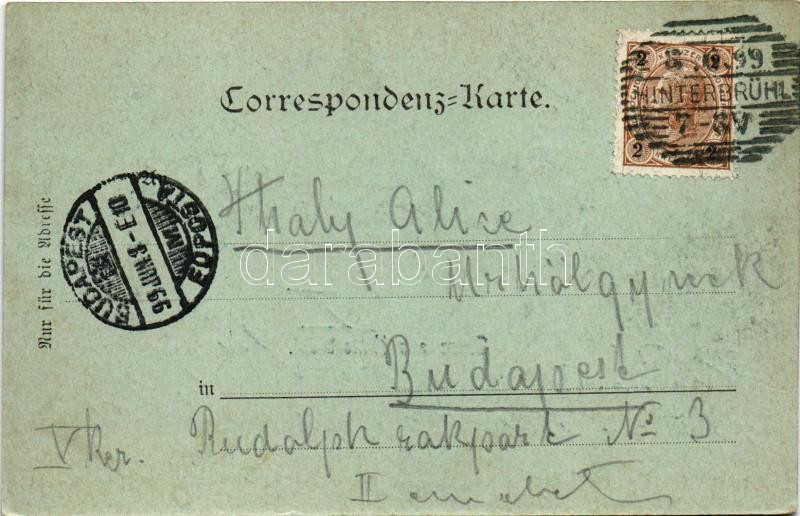 Correspondenz-Karte.
2 2
6. 99
HINTERBRÜHL
7-8V
2 2
Nur für die Adresse
BUDAPEST
99 JUN. 3-E.10
M
FŐPOSTA
Thaly Alice
Urhölgynek
darabanth.com
in Budapest
V ker. Rudolph rakpart No 3
II emelet